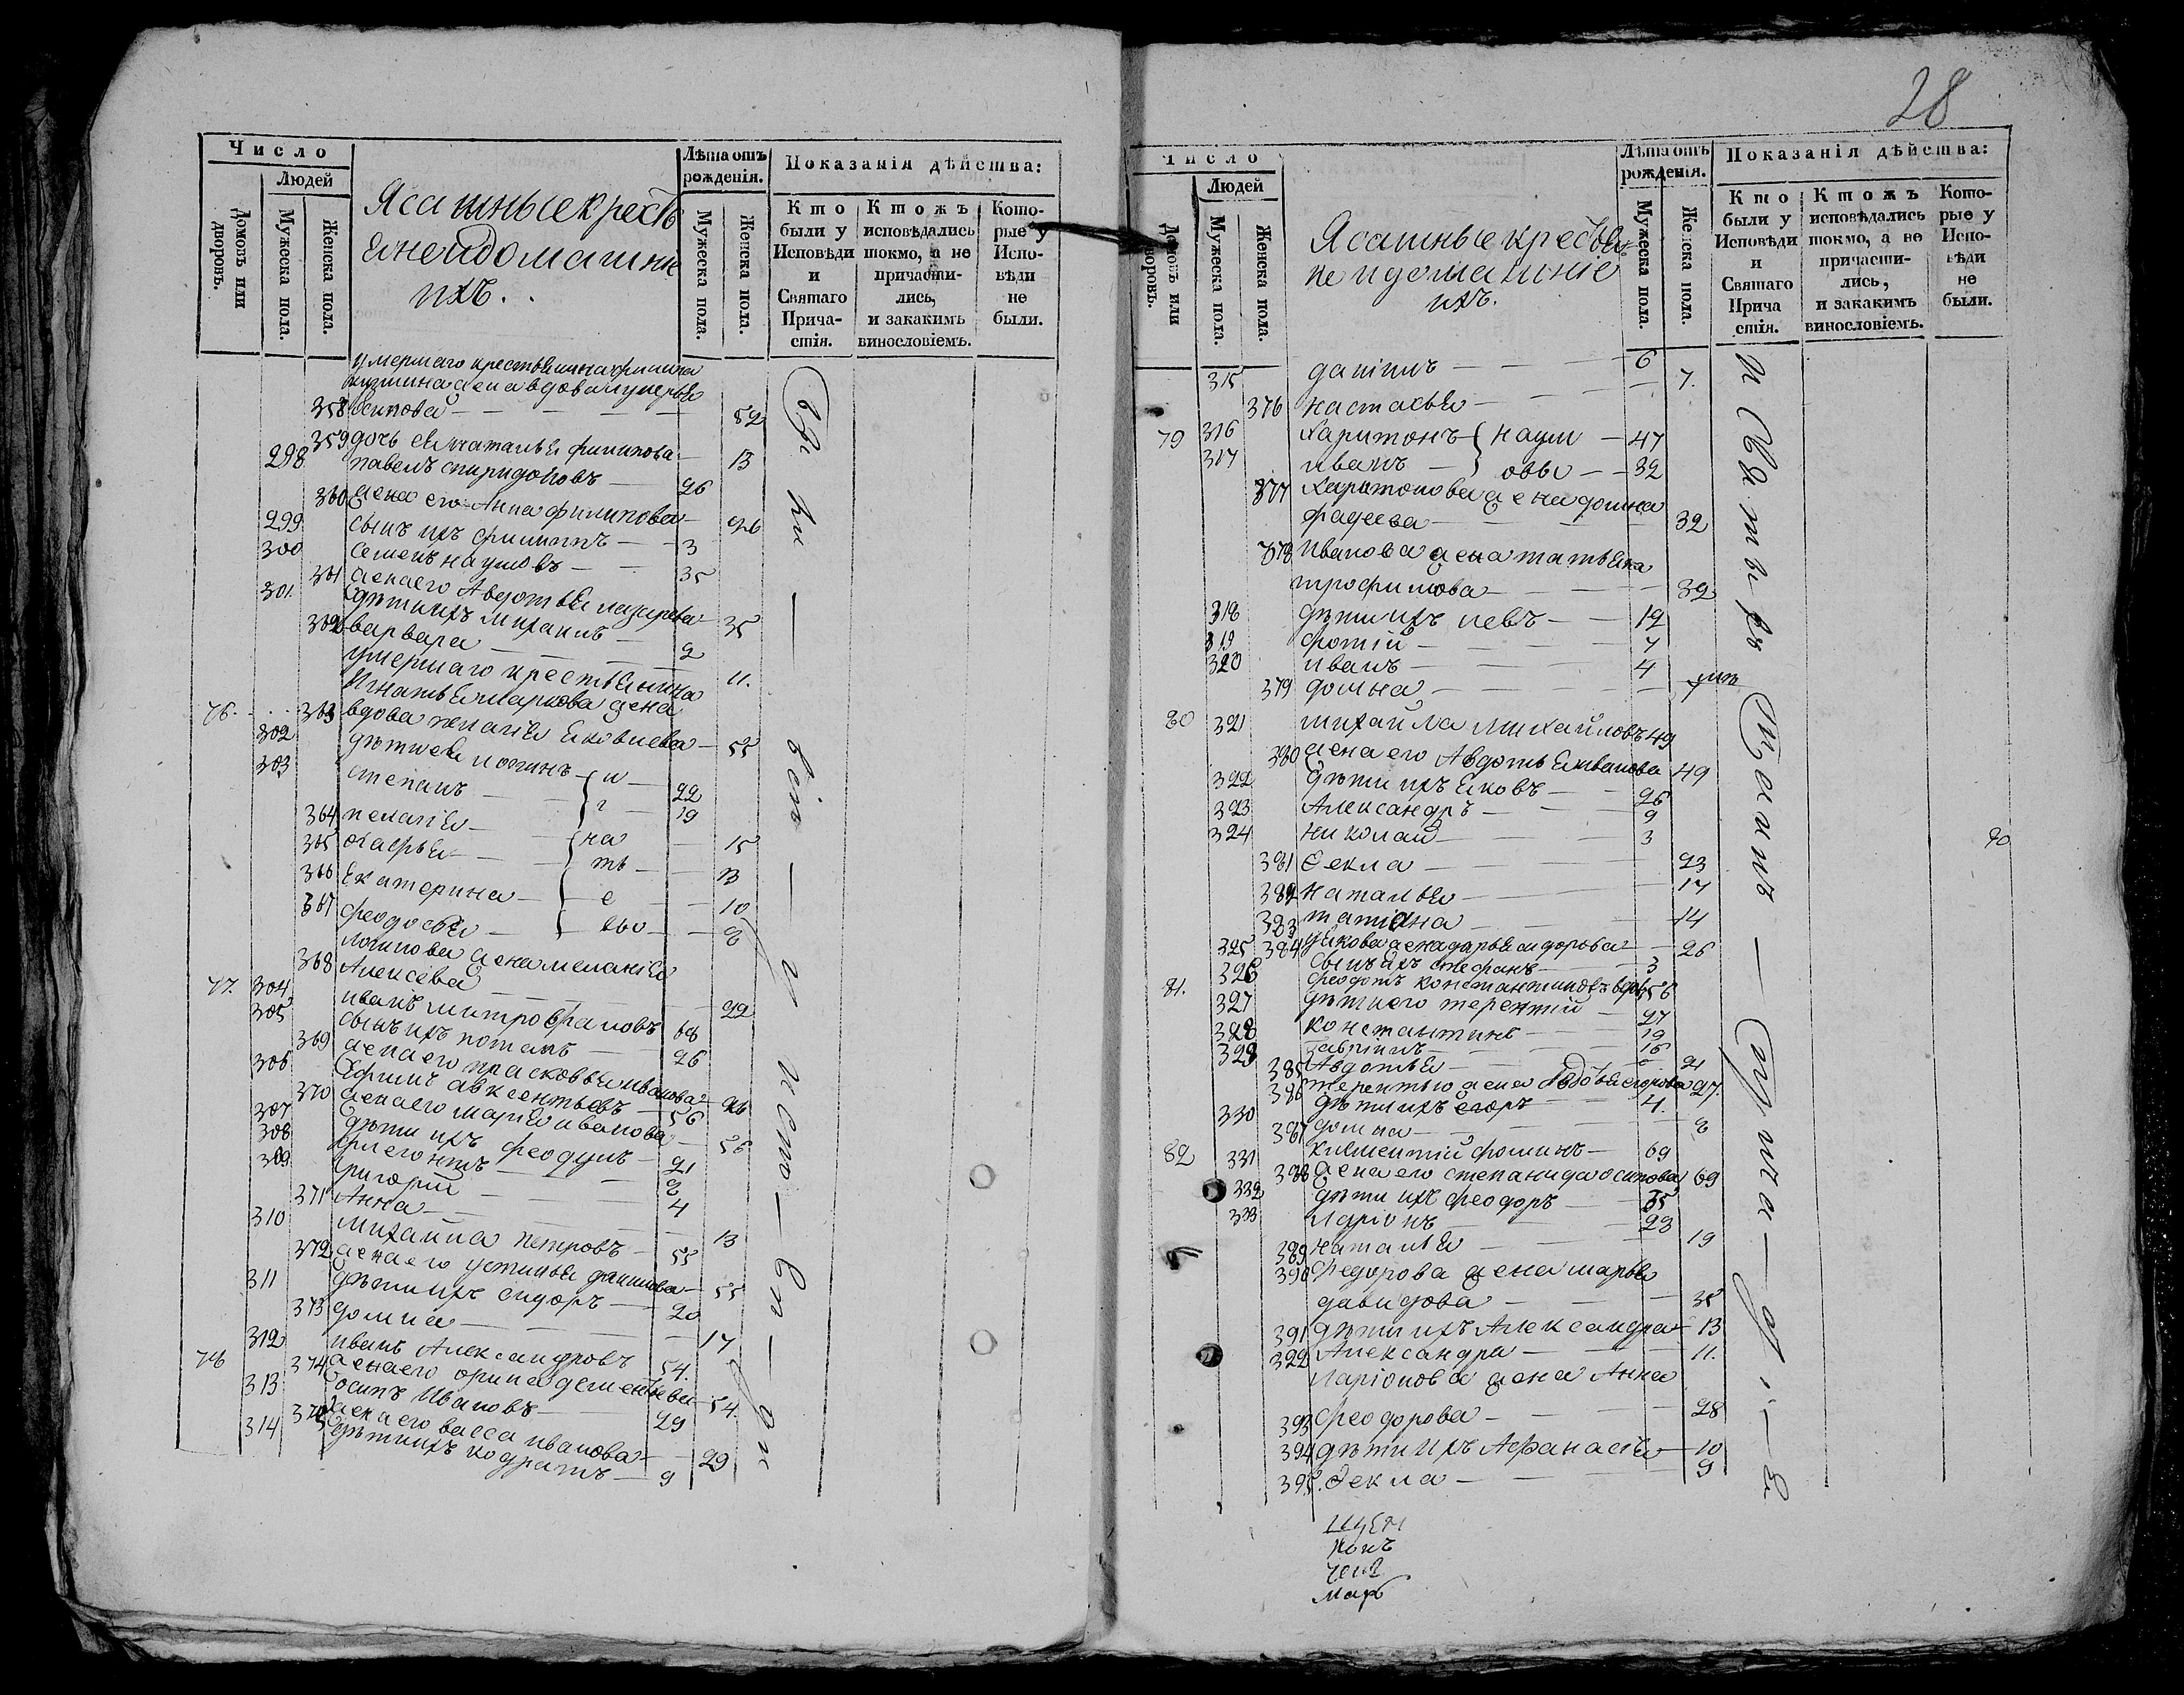 Число
Людей
Домовъ или дворовъ.
Мужеска пола.
Женска пола.
Ясашные кресть
яне и домашніе
ихъ.
Лѣта отъ рожденія.
Мужеска пола.
Женска пола.
Показанія дѣйства:
Кто были у Исповѣди и Святаго Причастія.
Ктожъ исповѣдались токмо, а не причастились, и закакимъ винословіемъ.
Которые у Исповѣди не были.
умершаго крестьянина филипа
жена вдова лукерья
358 осипова 52
359 дочь ея наталья филипова 13
298 павелъ спиридоновъ 26
360 жена его Анна филипова 26
299 сынъ ихъ филиппъ 3
300 семенъ наумовъ 35
361 жена его Авдотья лазарева 35
301. дѣти ихъ михаилъ 2
362 варвара 11.
умершаго крестьянина
Игнатья маркова жена
76. 363 вдова пелагія яковлева 55
302 дѣти ея логинъ и 22
303 степанъ г 19
364 пелагія на 15
365 агафья ть 13
366 Екатерина е 10
367 феодосья вы 8
логинова жена меланія
368 Алексѣева 22
77. 304 иванъ митрофановъ 68
305 сынъ ихъ потапъ 26
369 жена его прасковья иванова 26
306 Ефимъ авксентьевъ 56
370 жена его марія иванова 56
307 дѣти ихъ феодулъ 21
308 флегонтъ 8
309 григорій 4
371 Анна 13
310 михайла петровъ 55
372 жена его устинья данилова 55
311 дѣти ихъ сидоръ 20
373 домна 17
312 иванъ Александровъ 54.
78 374 жена его орина дементьева 54.
313 осипъ Ивановъ 29
375 жена его васса иванова 29
314 дѣти ихъ кодратъ 9
28
Число
Людей
Домовъ или дворовъ.
Мужеска пола.
Женска пола.
Ясашные крестья
не и домашніе
ихъ.
Лѣта отъ рожденія.
Мужеска пола.
Женска пола.
Показанія дѣйства:
Кто были у Исповѣди и Святаго Причастія.
Ктожъ исповѣдались токмо, а не причастились, и закакимъ винословіемъ.
Которые у Исповѣди не были.
315 даніилъ 6
376 настасья 7.
79 316 Харитонъ наум 47
317 иванъ овы 32
377 Харитонова жена домна
фадеева 32
378 Иванова жена татьяна
трофимова 32
318 дѣти ихъ левъ 12
319 фотій 7
320 иванъ 4
379 домна
80 321 михайла михайловъ 49
380 жена его Авдотья иванова 49
322 дѣти ихъ яковъ 26
323 Александръ 9
324 николай 3
20
381 Ѳекла 23
382 наталья 17
383 татіана 14
384 якова жена дарья сидорова 26
325 сынъ ихъ стефанъ 3
81. 326 феодотъ константиновъ вдовъ 56
327 дѣти его терентій 27
328 константинъ 19
329 гавріилъ 16
385 Авдотья 21
386 терентью жена Авдотья егорова 27.
330 дѣти ихъ егоръ 4.
387 домна 8
82 331 климентій фоминъ 69
388 жена его степанида осипова 69
332 дѣти ихъ феодоръ 35
333 Ларіонъ 28
389 наталья 19
390 Федорова жена марья
давидова 35
391 дѣти ихъ Александра 13
392 Александра 11.
Ларіонова жена Анна
393 феодорова 28
394 дѣти ихъ Афанасія 10
395. Ѳекла 9